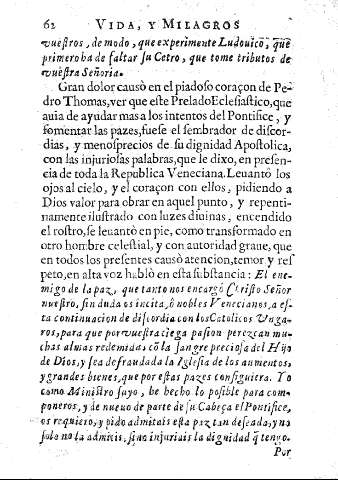 62 VIDA, Y MILAGROS
vuestros, de modo, que experimente Ludouico, que
primero ha de faltar su Cetro, que tome tributos de
vuestra Señoria.
Gran dolor causò en el piadoso coraçon de Pe-
dro Thomas, ver que este Prelado Eclesiastico, que
auia de ayudar mas a los intentos del Pontifice, y
fomentar las pazes, fuese el sembrador de discor-
dias, y menosprecios de su dignidad Apostolica,
con las injuriosas palabras, que le dixo, en presen-
cia de toda la Republica Veneciana. Leuantò los
ojos al cielo, y el coraçon con ellos, pidiendo a
Dios valor para obrar en aquel punto, y repenti-
namente ilustrado con luzes diuinas, encendido
el rostro, se leuantò en pie, como transformado en
otro hombre celestial, y con autoridad graue, que
en todos los presentes causò atencion, temor y res
peto, en alta voz hablò en esta substancia: El ene-
migo de la paz, que tanto nos encargò Christo Señor
nuestro, sin duda os incita, ò nobles Venecianos, a es-
ta continuacion de discordia con los Catolicos Unga-
ros, para que por vuestra ciega pasion perezcan mu-
chas almas redemidas cõ la sangre preciosa del Hijo
de Dios, y sea defraudada la Iglesia de los aumentos,
y grandes bienes, que por estas pazes consiguiera. Yo
como Ministro suyo, he hecho lo posible para com-
poneros, y de nueuo de parte de su Cabeça el Pontifice,
os requiero, y pido admitais esta paz tan deseada, y no
solo no la admitis, sino injuriais la dignidad q̃ tengo.
Por